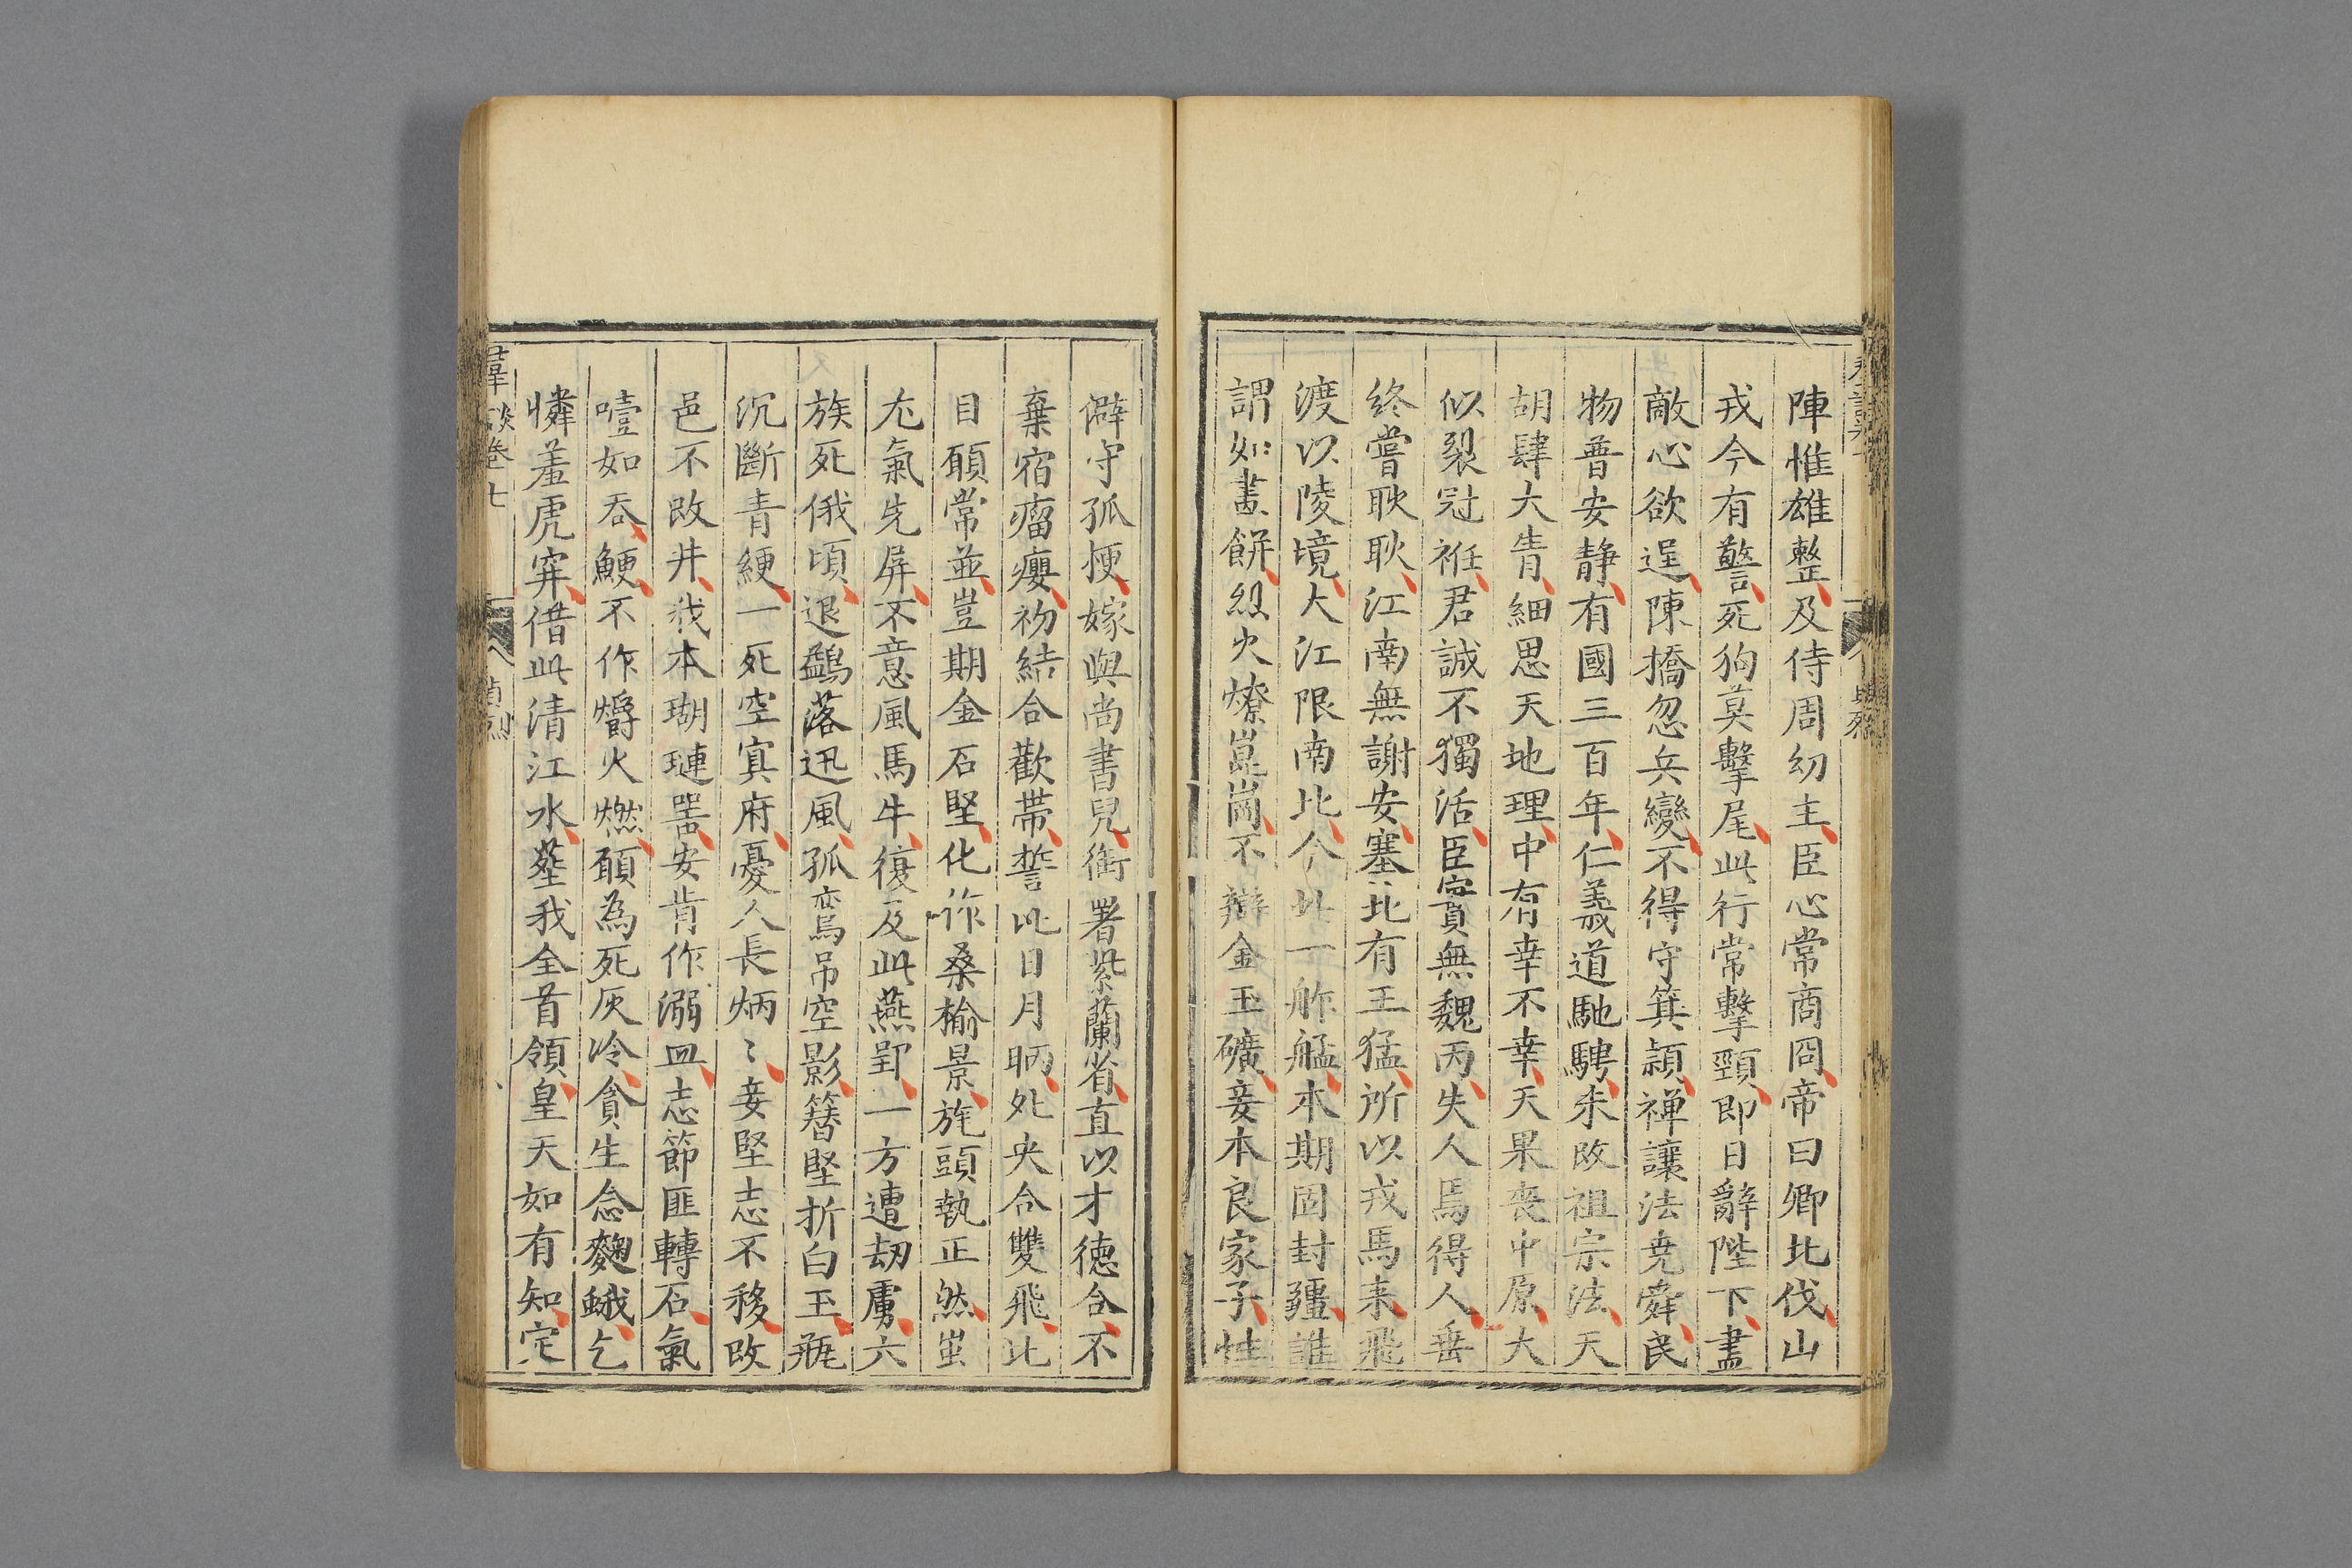 陣惟雄整及侍周幼主臣心常商冏帝曰卿北伐山
戎今有警死狗莫擊尾此行常擊頸即日辭陛下盡
敵心欲逞陳橋忽兵變不得守箕潁禅讓法堯舜民
物普安静有國三百年仁義道馳騁未改祖宗法天
胡肆大眚細思天地理中有幸不幸天果喪中原大
似裂冠袵君誠不獨活臣實無魏丙失人焉得人垂
終嘗耿耿江南無謝安塞北有王猛所以戎馬来飛
渡以陵境大江限南北今此一舴艋本期固封疆誰
謂如畫餅烈火燎崑崗不辯金玉礦妾本良家子性
僻守孤梗嫁與尚書兒衙署紫蘭省直以才德合不
棄宿瘤癭初結合歡帯誓比日月昞処央合雙飛比
目願常並豈期金石堅化作桑榆景旄頭執正然蚩
尤氣先屏不意風馬牛復及此燕郢一方遭劫虜六
族死俄頃退鷁落迅風孤鸞吊空影簪堅折白玉瓶
沉斷青綆一死空寘府憂人長炳〻妾堅志不移改
邑不改井我本瑚璉噐安肯作溺皿志節匪轉石氣
噎如吞鯁不作爝火燃願為死灰冷貪生念麴蛾乞
憐羞虎穽借此清江水塟我全首領皇天如有知定
羣談卷七
八
貞烈